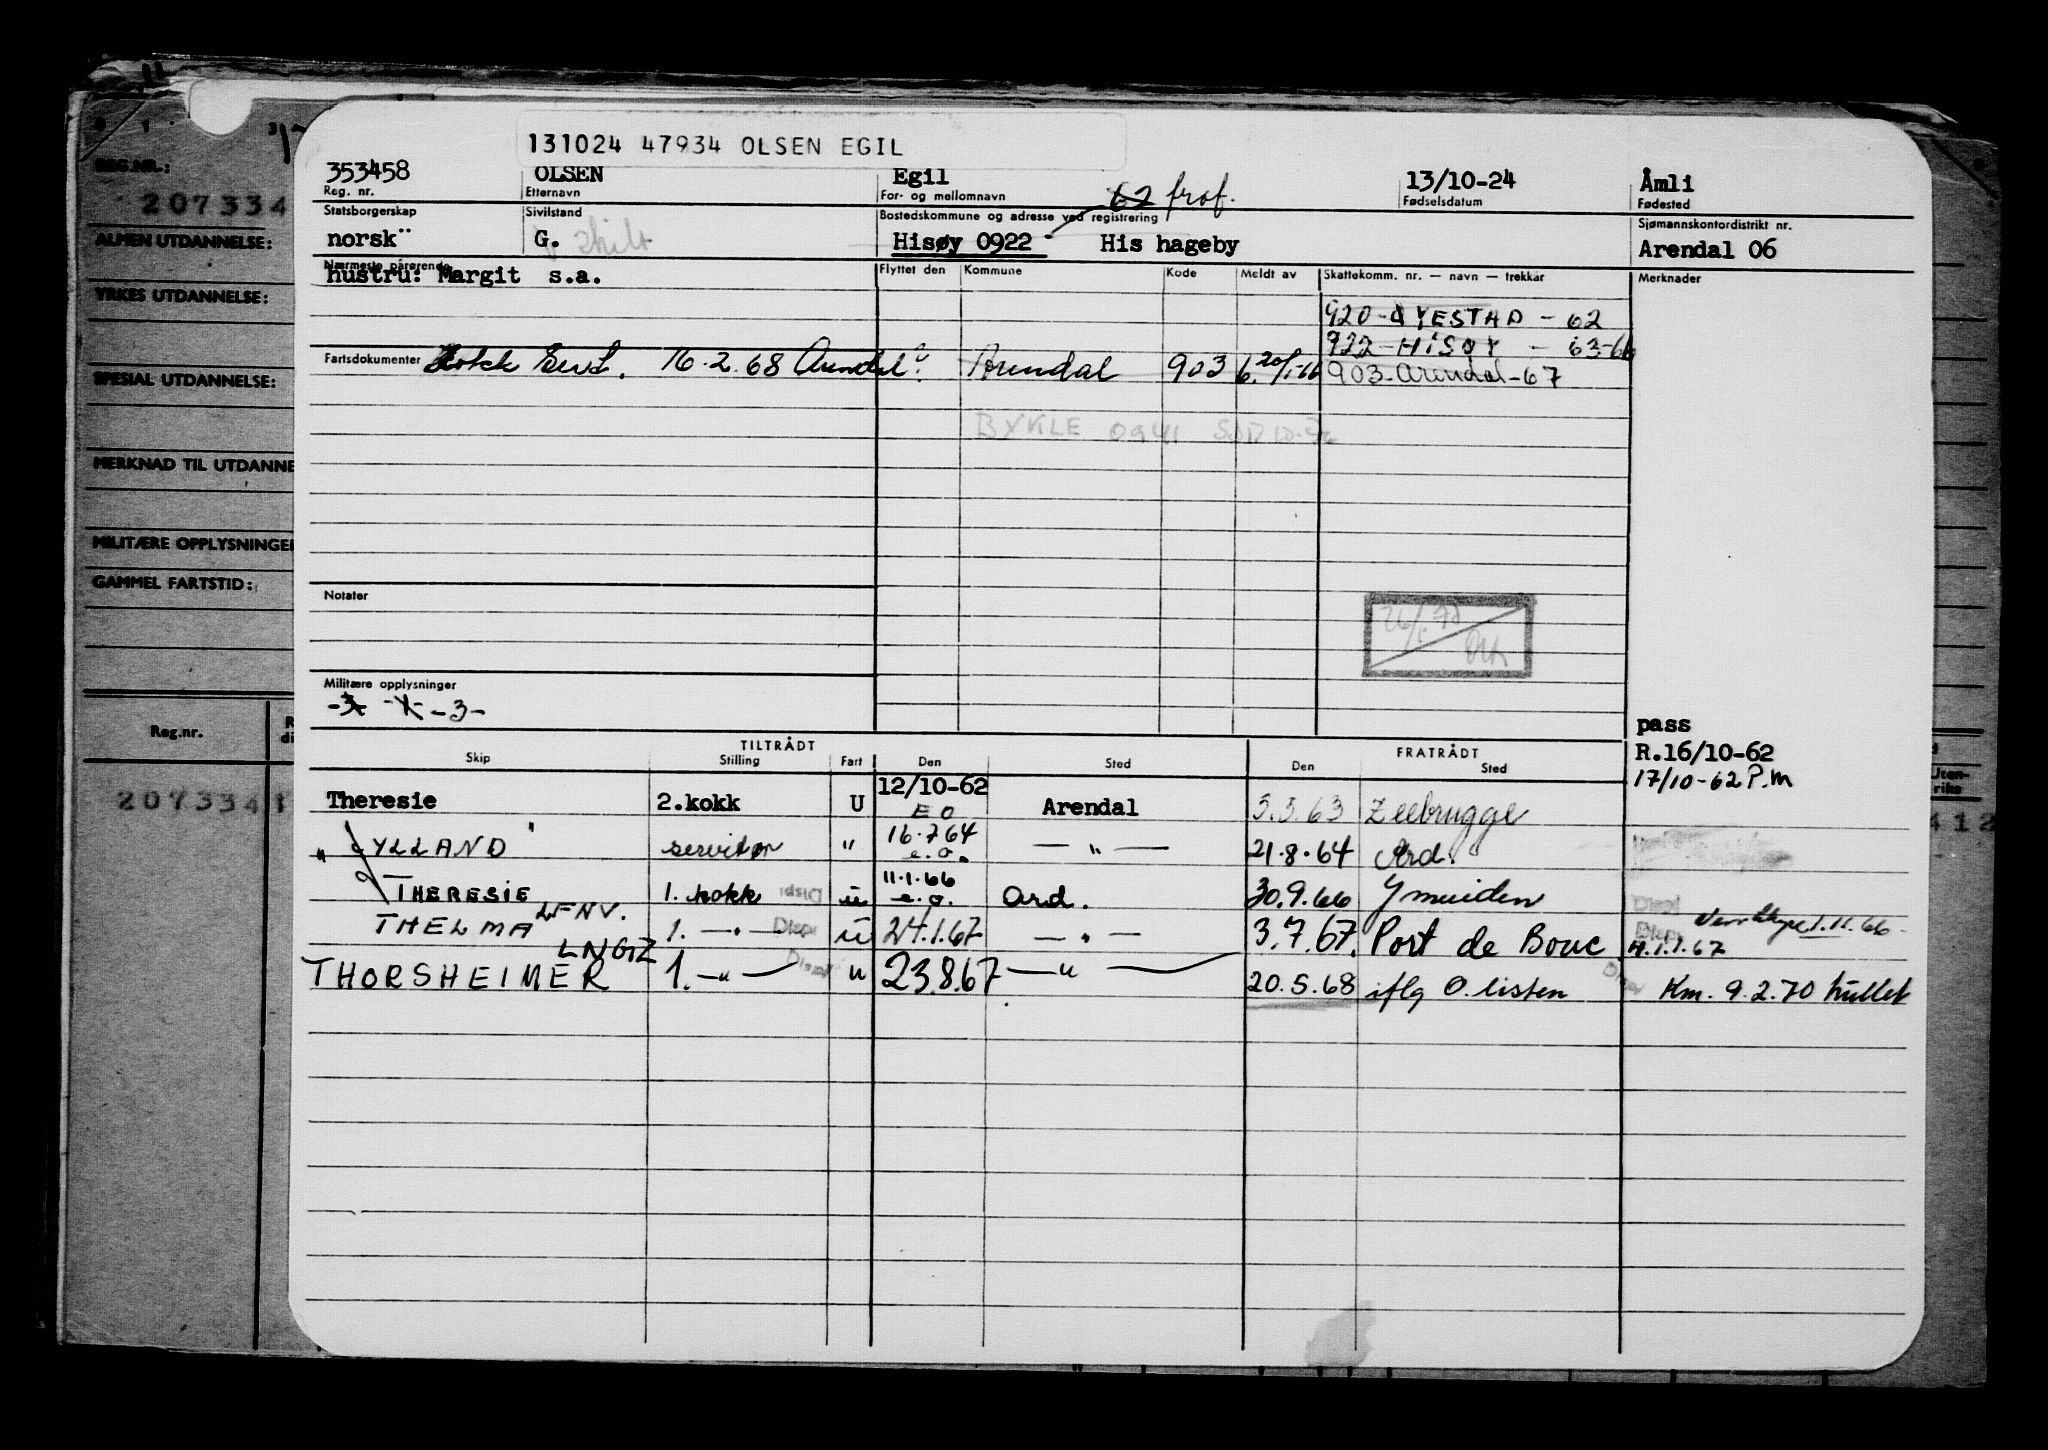 131024 47934 OLSEN EGIL
353458 OLSEN Egil 13/10-24 Åmli
Reg. nr. Etternavn For- og mellomnavn 62 fraf. Fødselsdatum Fødested
Statsborgerskap Sivilstand Bostedskommune og adresse ved registrering Sjømannskontordistrikt nr.
norsk G. skilt Hisøy 0922 His hageby Arendal 06
Nærmeste pårørende Flyttet den Kommune Kode Meldt av Skattekomm. nr. — navn — trekkår Merknader
hustru: Margit s.a.
920 - ØYESTAD - 62
922 - HISØY - 63-66
Fartsdokumenter Kokk Sert. 16.2.68 Arendal Arendal 903 903 - Arendal - 67
BYKLE 0941
Notater
Militære opplysninger
-3-
pass
R.16/10-62
17/10-62 P.m
TILTRÅDT FRATRÅDT
Skip Stilling Fart Den Sted Den Sted
Theresie 2.kokk U 12/10-62 EO Arendal 5.5.63 Zeebrugge
" JYLLAND " servitør " 16.7.64 e.o. — " — 21.8.64 Ard.
THERESIE 1. kokk Disp u 11.1.66 e.o. Ard. 30.9.66 Ymuiden Disp
THELMA LFNV. 1. — " — Disp u 24.1.67 — " — 3.7.67. Port de Bouc Disp 1.11.66 - 11.1.67
THORSHEIMER LNGZ 1. — " — u 23.8.67 — " — 20.5.68 iflg O. listen Km. 9.2.70 hullet
REG.NR.:
207334
ALMEN UTDANNELSE:
YRKES UTDANNELSE:
SPESIAL UTDANNELSE:
MERKNAD TIL UTDANNE
MILITÆRE OPPLYSNINGER
GAMMEL FARTSTID:
Reg.nr.
207334
Uten-
riks
412